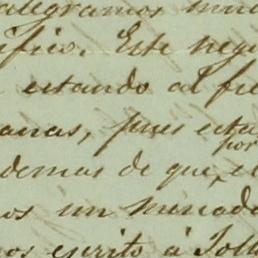 alegramos mu
ifico. Este neg
estando al fre
anas, pues esta
por
demas de que, e
os un mercado
os escrito á Joll